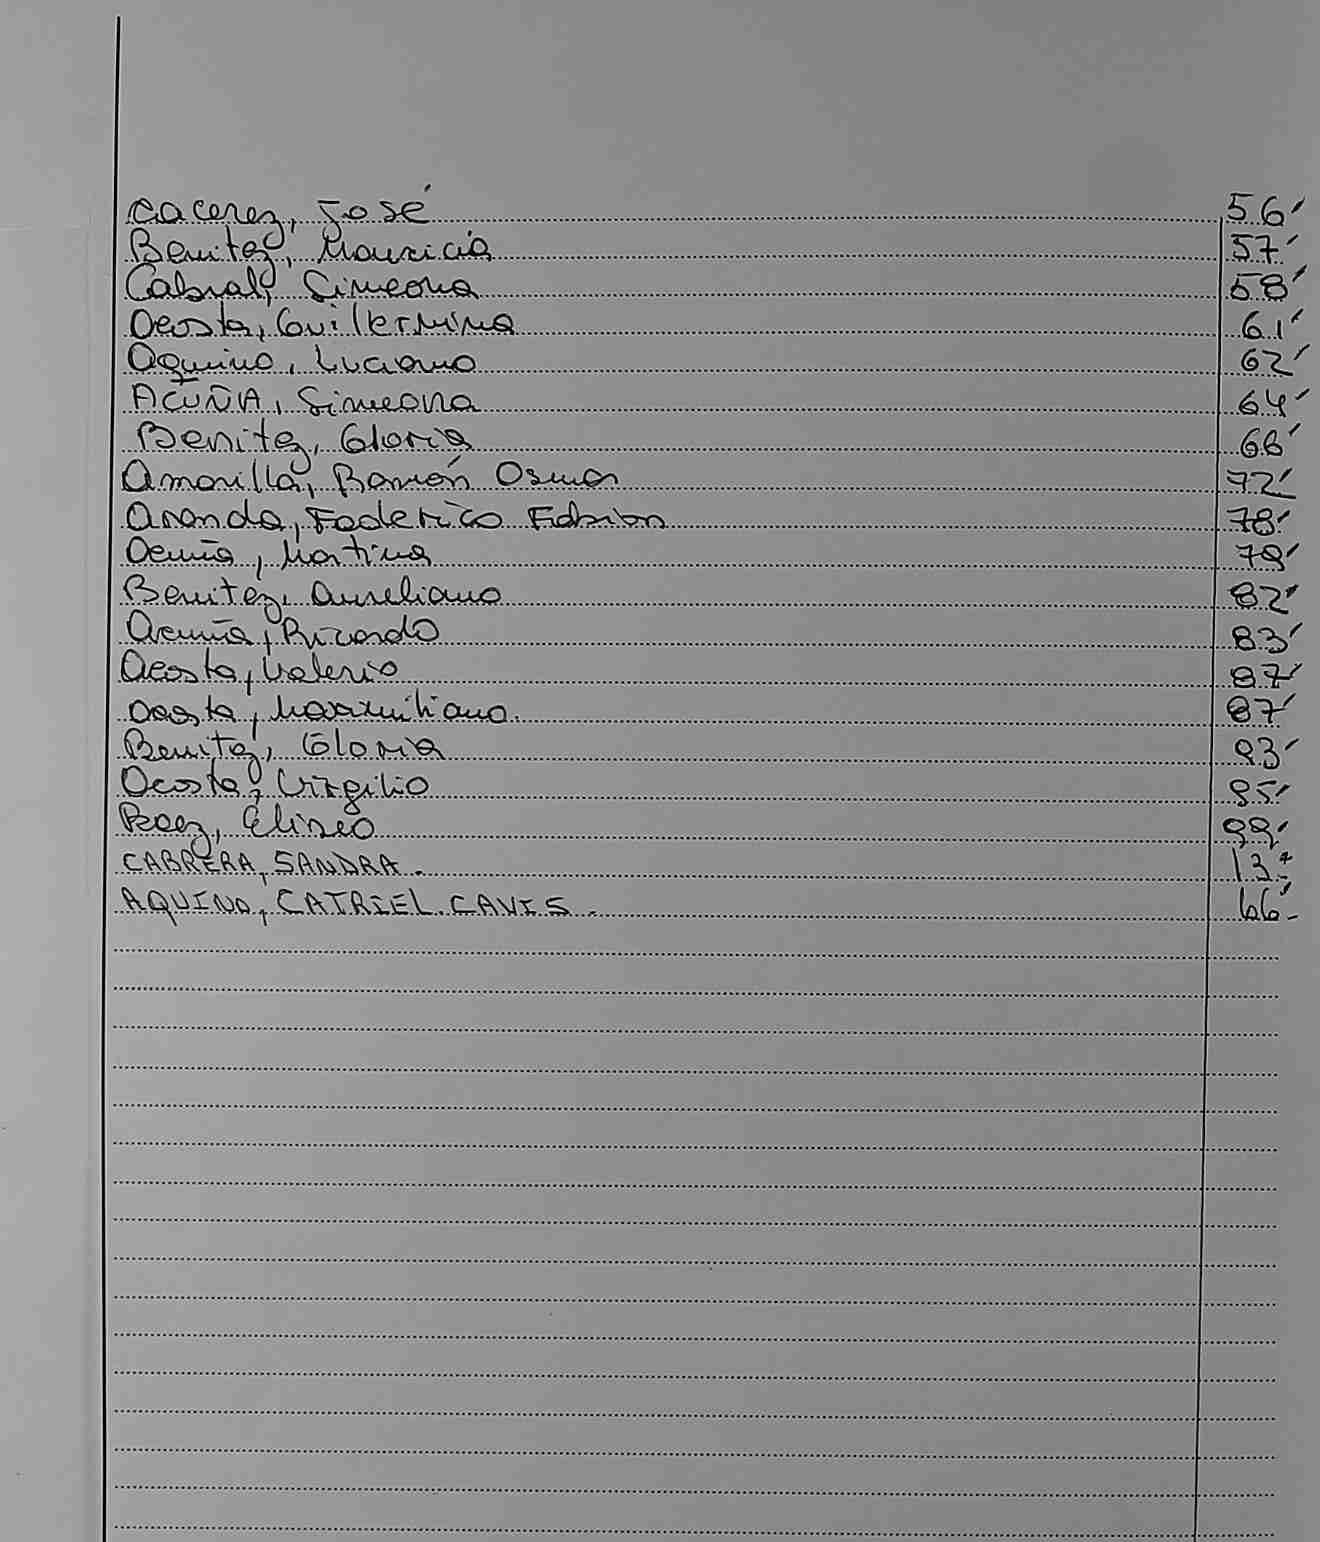 Cacerez, José 56'
Benitez, Mauricia 57'
Cabral, Simeona 58'
Acosta, Guillermina 61'
Aquino, Luciano 62'
ACUÑA, Simeona 64'
Benitez, Gloria 66'
Amarilla, Ramón Osmar 72'
Aranda, Federico Fabian 78'
Acuña, Martina 79'
Benitez, Aureliano 82'
Acuña, Ricardo 83'
Acosta, Valerio 87'
Acosta, Maximiliano. 87'
Benitez, Gloria 93'
Acosta, Virgilio 95'
Baez, Eliseo 99'
CABRERA, SANDRA. 13
AQUINO, CATRIEL. 66'-